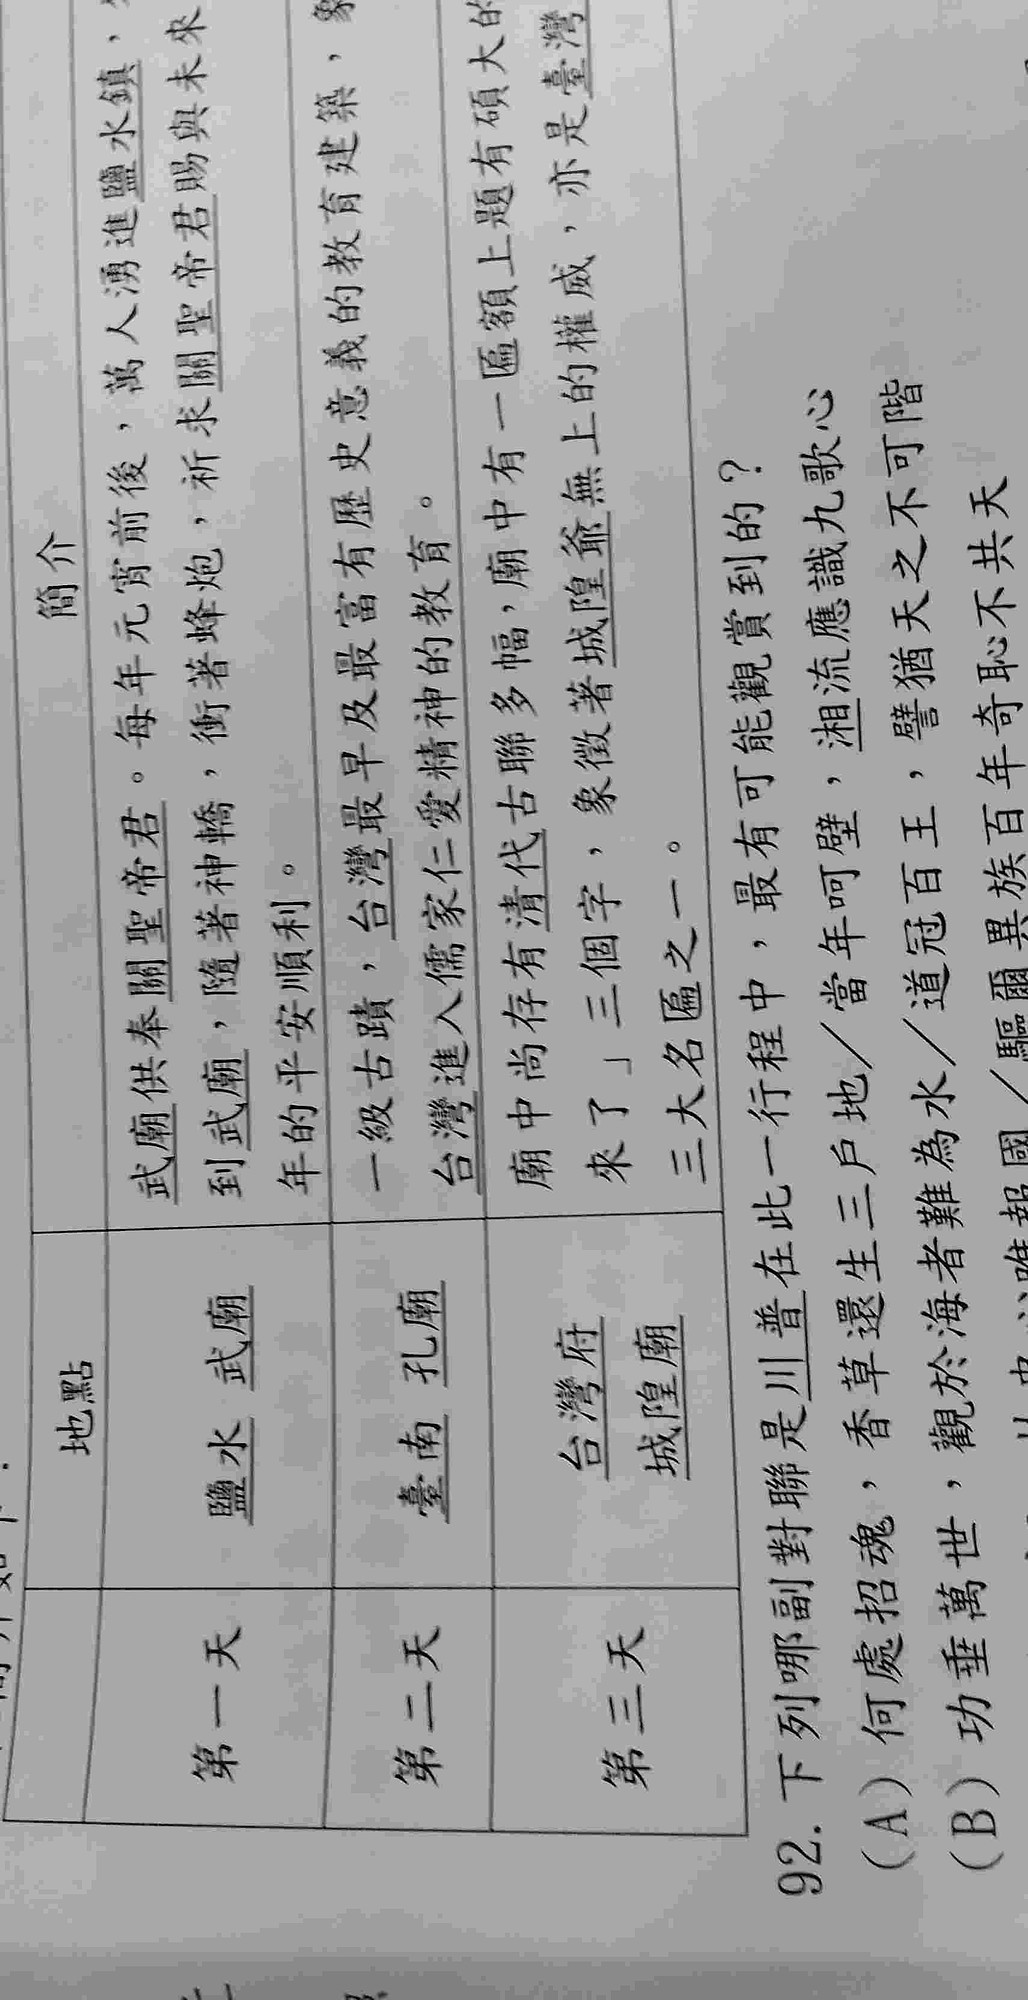 地點　簡介
第一天　鹽水　武廟　武廟供奉關聖帝君。每年元宵前後，萬人湧進鹽水鎮，
到武廟，隨著神轎，衝著蜂炮，祈求關聖帝君賜與未來
年的平安順利。
第二天　臺南　孔廟　一級古蹟，台灣最早及最富有歷史意義的教育建築，象
台灣進入儒家仁愛精神的教育。
第三天　台灣府
城隍廟　廟中尚存有清代古聯多幅，廟中有一匾額上題有碩大的
來了」三個字，象徵著城隍爺無上的權威，亦是臺灣
三大名匾之一。
92. 下列哪副對聯是川普在此一行程中，最有可能觀賞到的？
(A) 何處招魂，香草還生三戶地／當年呵壁，湘流應識九歌心
(B) 功垂萬世，觀於海者難為水／道冠百王，譬猶天之不可階
報國／驅爾異族百年奇恥不共天